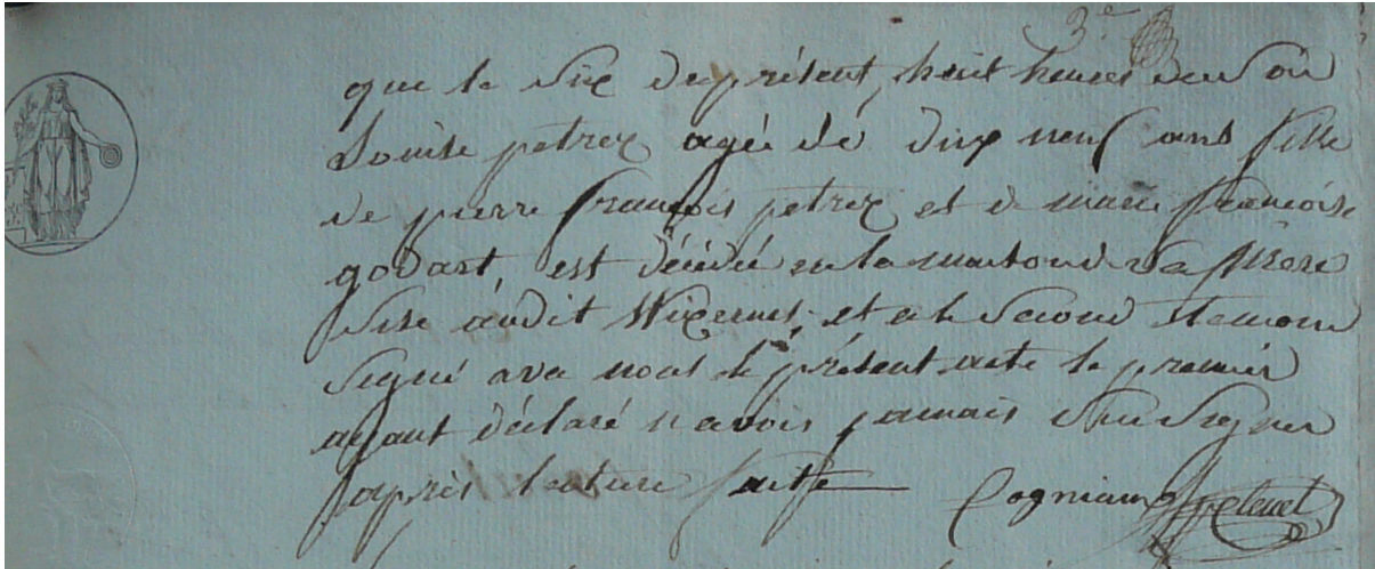 3e
que le Six du présent, huit heures du Soir
Louise petrez agée de dix neuf ans fille
de pierre françois petrez et de marie françoise
godart, est décédée en la maison de Sa Mere
Sise audit Wizernes, et a le Second temoin
Signé avec nous le présent acte le premier
ayant déclaré n'avoir jamais Sçu Signer
après lecture faite
Cogniaux